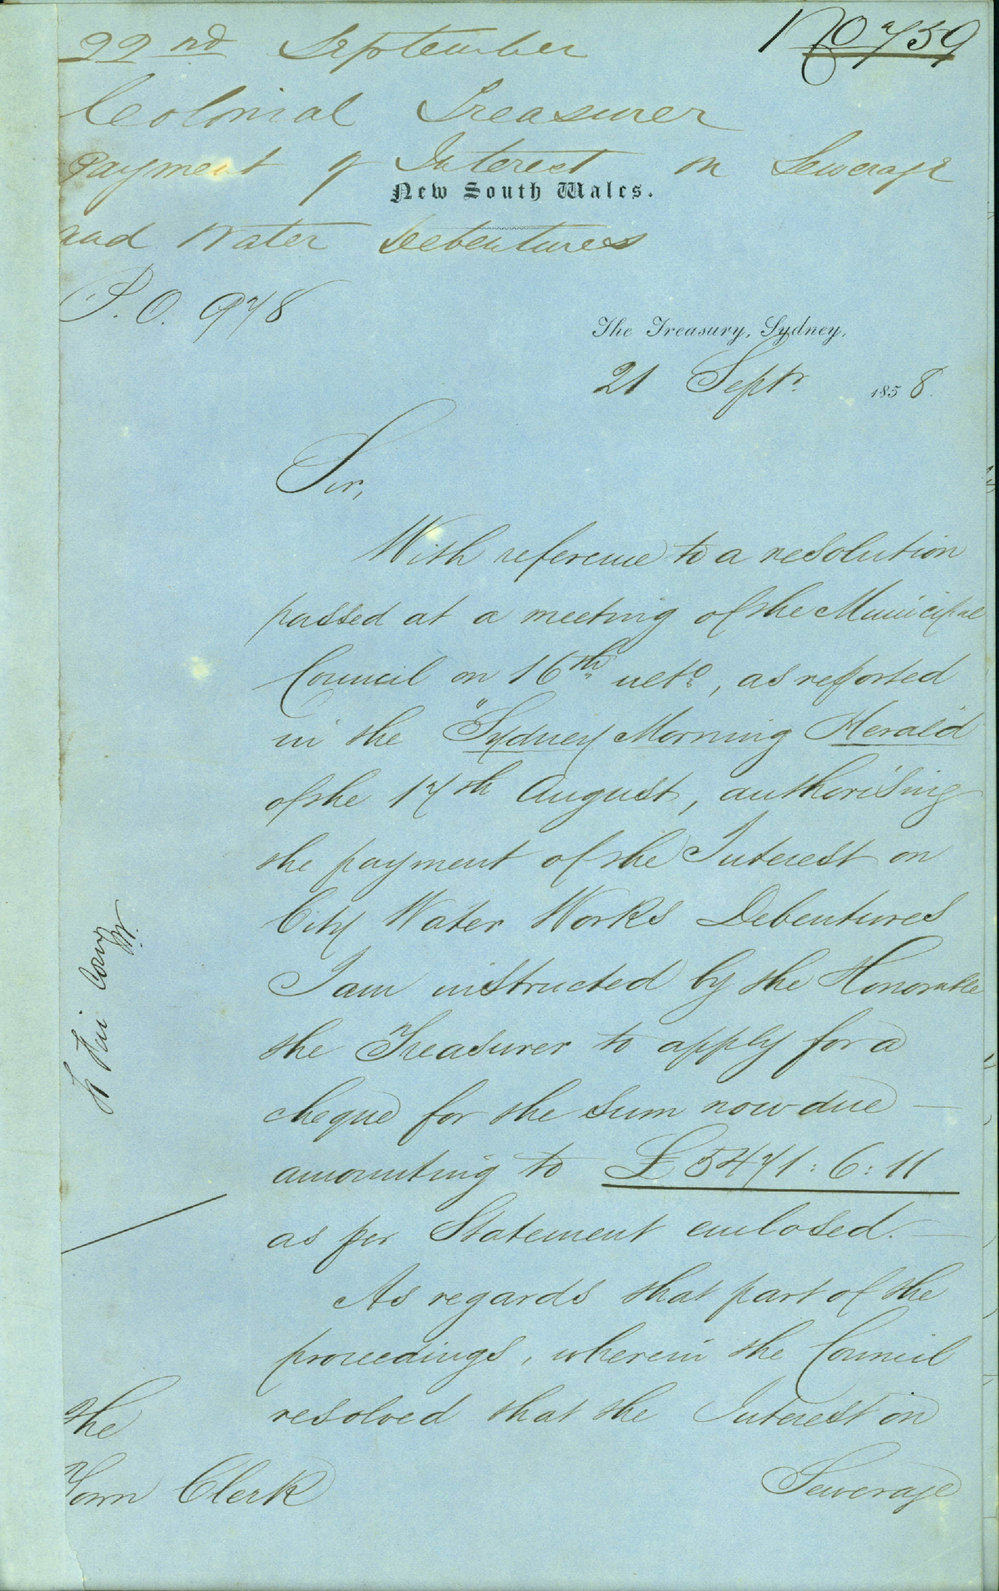 No 759
22nd September
Colonial Treasurer
Payment of Interest on Sewerage
New South Wales.
and Water Debentures
P.O. 978
The Treasury, Sydney,
21 Septr. 1858.
Sir,
With reference to a resolution
passed at a meeting of the Municipal
Council on 16th ulto, as reported
in the "Sydney Morning Herald"
of the 17th August, authorising
the payment of the Interest on
City Water Works Debentures
I am instructed by the Honorable
the Treasurer to apply for a
cheque for the sum now due
amounting to £5471:6:11
as per Statement enclosed.
As regards that part of the
proceedings, wherein the Council
resolved that the Interest on
Sewerage
The
Town Clerk